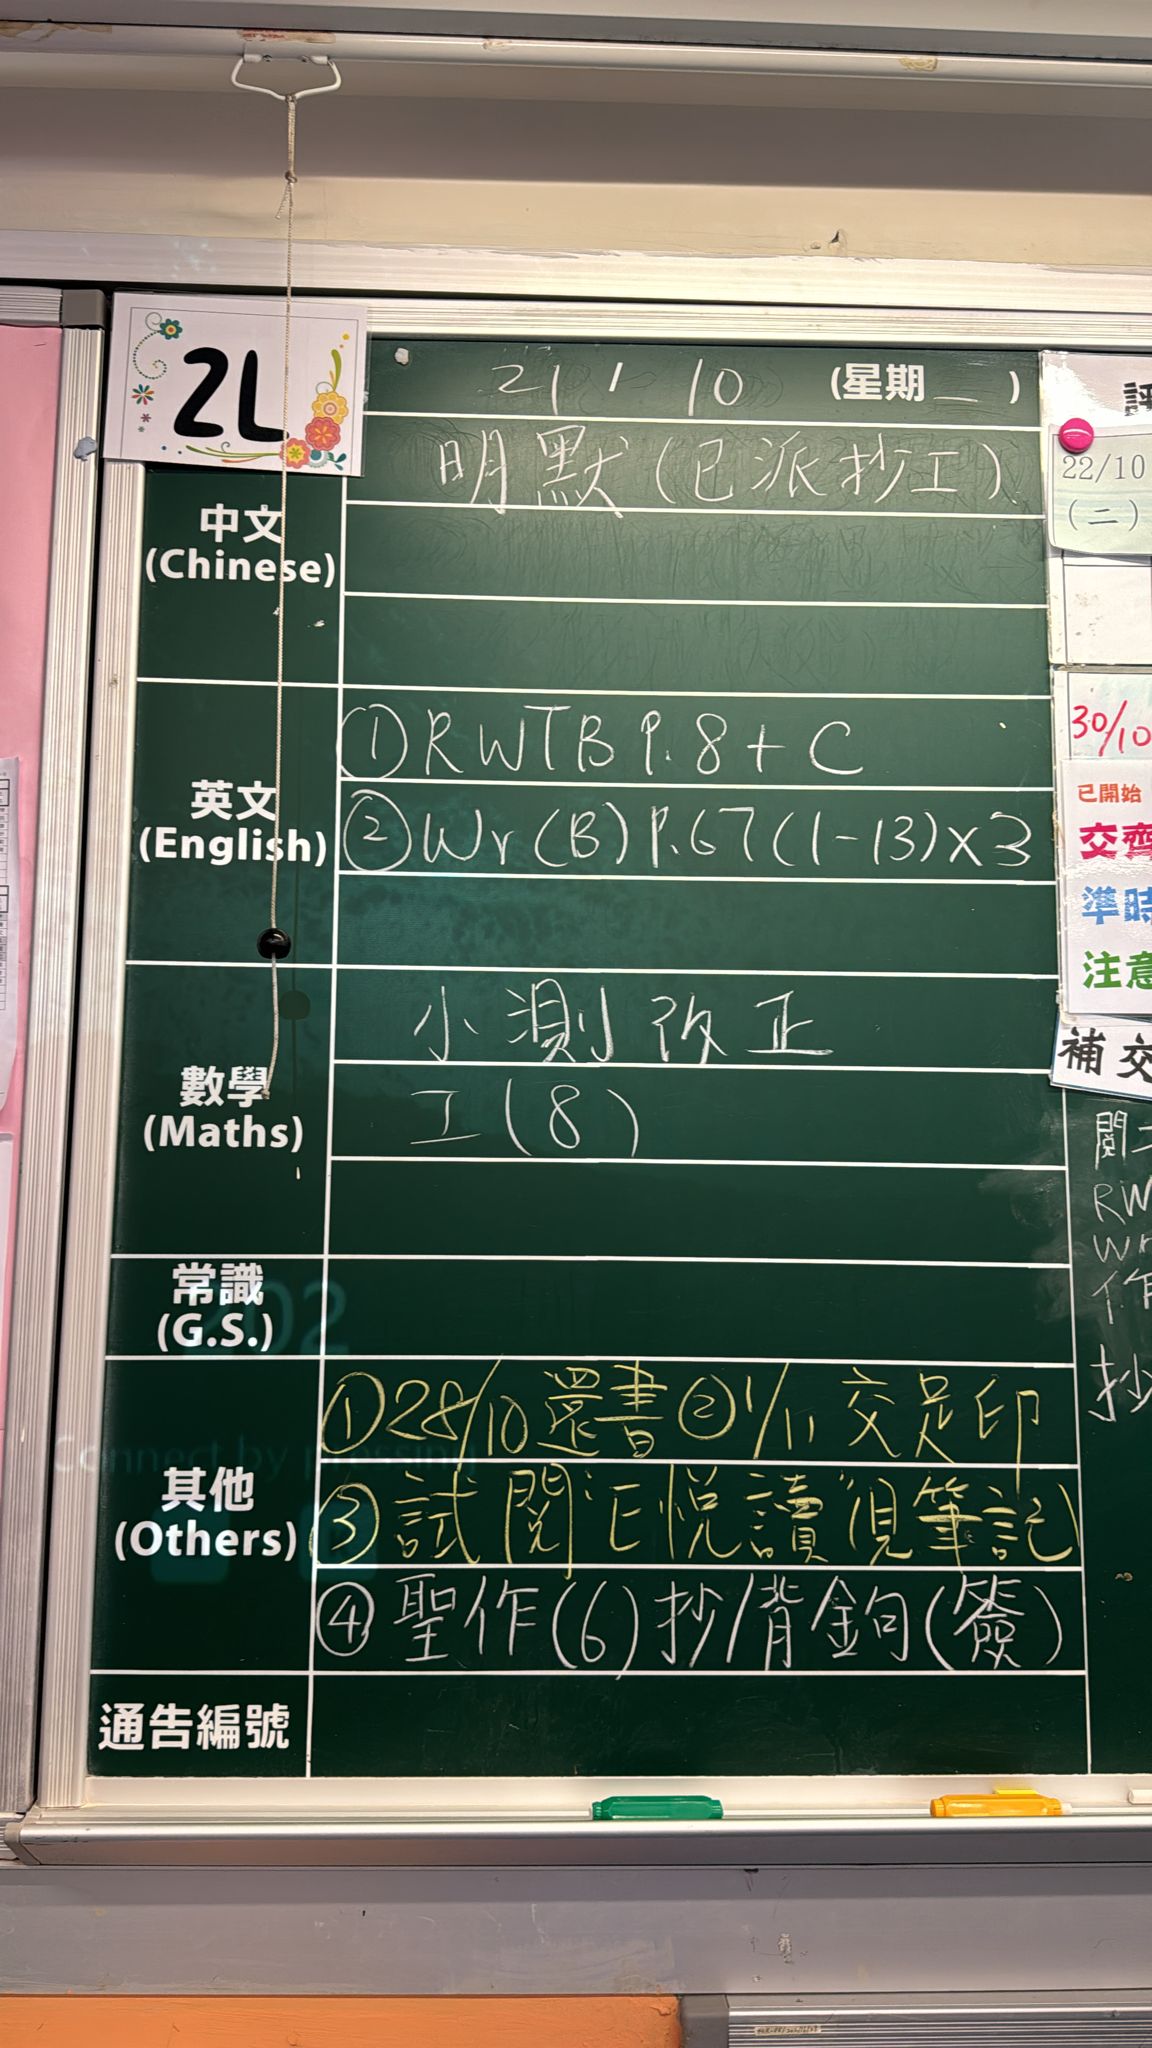 2L
21 / 10 (星期一)
中文
(Chinese)
明默(已派抄工)
英文
(English)
①RWTB P.8+C
②Wr(B) P.67(1-13)x3
數學
(Maths)
小測改正
工(8)
常識
(G.S.)
其他
(Others)
①28/10還書②1/11交足印
③試閱、E悅讀、視筆記
④聖作(6)抄/背金句(簽)
通告編號
22/10
(二)
30/10
已開始
交齊
準時
注意
補交
RW
Wr
作
抄
202
Connect by pressing